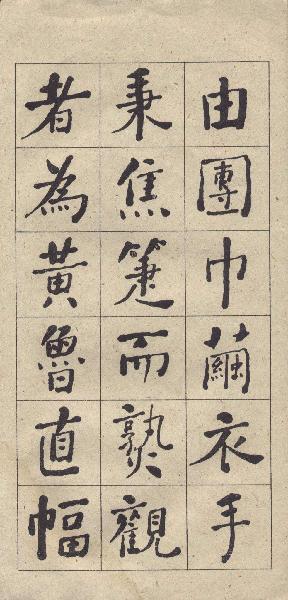 由團巾繭衣手
秉焦箑而熟觀
者為黃魯直幅